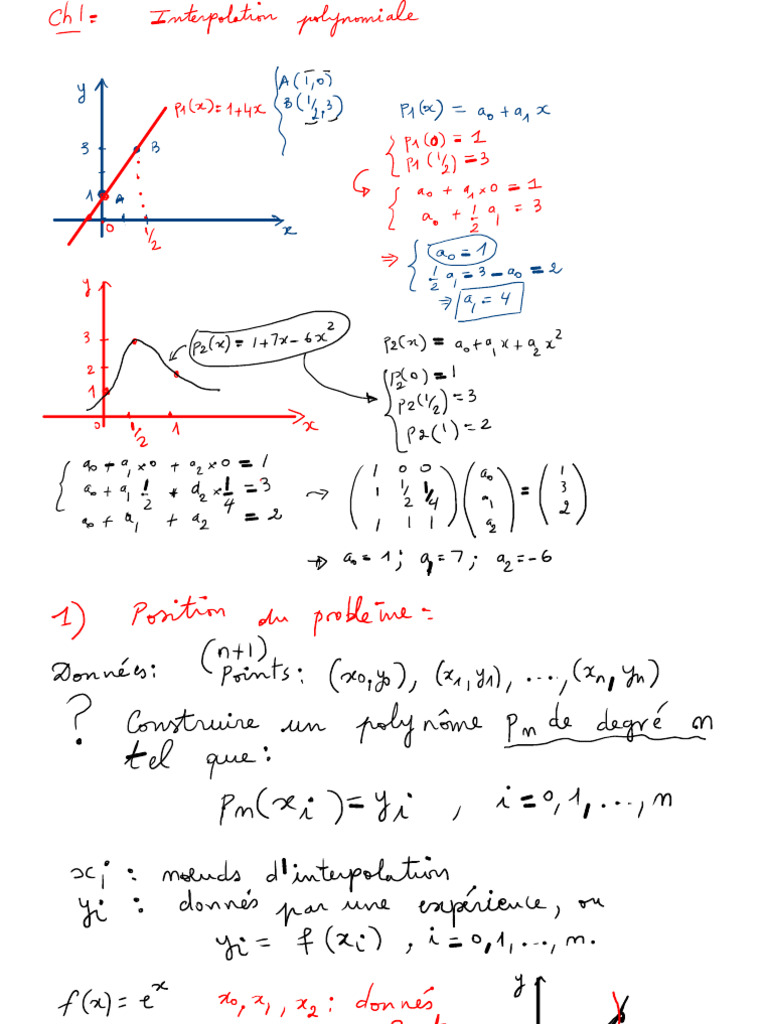 Ch1: Interpolation polynomiale
y
P1(x)=1+4x
A(1,0)
B(1/2,3)
3
B
1
A
0
1/2
x
P1(x) = a0+a1x
P1(0) = 1
P1(1/2) = 3
a0 + a1×0 = 1
a0 + 1/2 a1 = 3
⇒ a0 = 1
1/2 a1 = 3 - a0 = 2
⇒ a1 = 4
y
3
2
1
0
1/2
1
x
P2(x) = 1+7x-6x²
P2(x) = a0+a1x+a2x²
P2(0) = 1
P2(1/2) = 3
P2(1) = 2
a0 + a1×0 + a2×0 = 1
a0 + a1 1/2 + a2×1/4 = 3
a0 + a1 + a2 = 2
1 0 0 a0 1
1 1/2 1/4 a1 = 3
1 1 1 a2 2
→ a0 = 1; a1 = 7; a2 = -6
1) Position du problème:
Données: (n+1) Points: (x0,y0), (x1,y1), ..., (xn,yn)
? Construire un polynôme Pn de degré n
tel que:
Pn(xi) = yi , i=0,1,...,n
xi : nœuds d'interpolation
yi : donnés par une expérience, ou
yi = f(xi) , i=0,1,...,n.
f(x) = e^x x0, x1, x2 : donnés
y